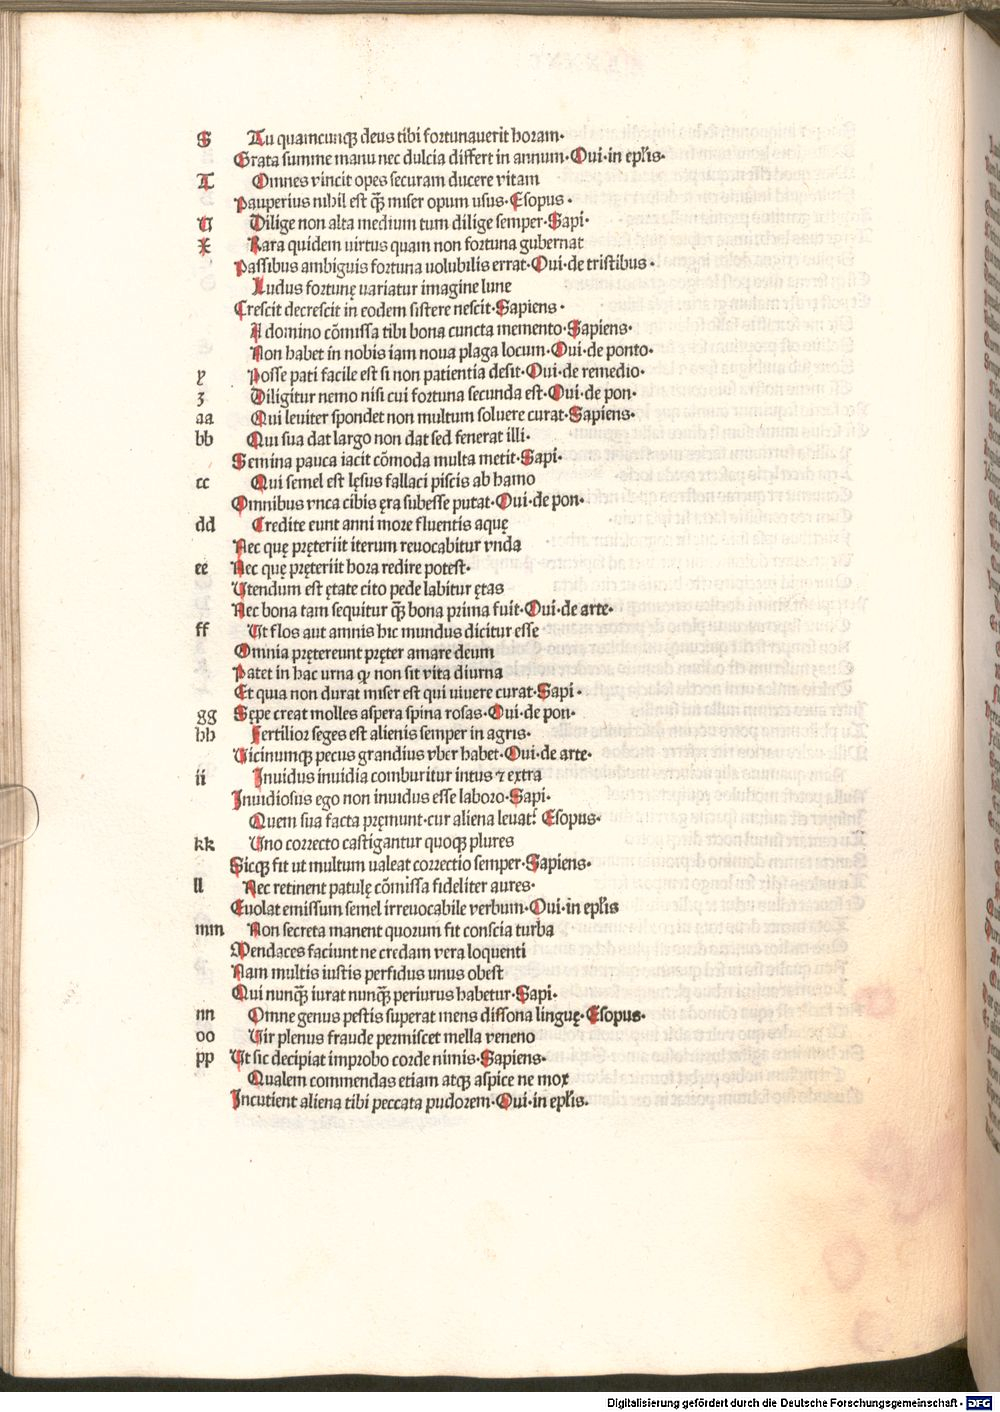 S Tu quamcunqꝫ deus tibi fortunauerit horam·
Grata summe manu nec dulcia differt in annum·Oui·in epƚis·
T Omnes vincit opes securam ducere vitam
Pauperius nihil est qꝫ̃ miser opum usus·Esopus·
U Dilige non alta medium tum dilige semper·Sapi·
X Rara quidem uirtus quam non fortuna gubernat
Passibus ambiguis fortuna uolubilis errat·Oui·de tristibus·
Ludus fortunę uariatur imagine lune
Crescit decrescit in eodem sistere nescit·Sapiens·
A domino cōmissa tibi bona cuncta memento·Sapiens·
Non habet in nobis iam noua plaga locum·Oui·de ponto·
y Posse pati facile est si non patientia desit·Oui·de remedio·
ʒ Diligitur nemo nisi cui fortuna secunda est·Oui·de pon·
aa Qui leuiter spondet non multum soluere curat·Sapiens·
bb Qui sua dat largo non dat sed fenerat illi·
Semina pauca iacit cōmoda multa metit·Sapi·
cc Qui semel est lęsus fallaci piscis ab hamo
Omnibus vnca cibis ęra subesse putat·Oui·de pon·
dd Credite eunt anni more fluentis aquę
Nec quę pręteriit iterum reuocabitur vnda
ee Nec quę pręteriit hora redire potest·
Utendum est ętate cito pede labitur ętas
Nec bona tam sequitur qꝫ̃ bona prima fuit·Oui·de arte·
ff Ut flos aut amnis hic mundus dicitur esse
Omnia prętereunt pręter amare deum
Patet in hac urna qꝛ non sit vita diurna
Et quia non durat miser est qui uiuere curat·Sapi·
gg Sępe creat molles aspera spina rosas·Oui·de pon·
hh Fertilior seges est alienis semper in agris·
Uicinumqꝫ pecus grandius vber habet·Oui·de arte·
ii Inuidus inuidia comburitur intus ⁊ extra
Inuidiosus ego non inuidus esse laboro·Sapi·
Quem sua facta pręmunt·cur aliena leuat? Esopus·
kk Uno correcto castigantur quoqꝫ plures
Sicqꝫ fit ut multum ualeat correctio semper·Sapiens·
ll Nec retinent patulę cōmissa fideliter aures·
Euolat emissum semel irreuocabile verbum·Oui·in epƚis
mm Non secreta manent quorum fit conscia turba
Mendaces faciunt ne credam vera loquenti
Nam multis iustis perfidus unus obest
Qui nunqꝫ̃ iurat nunqꝫ̃ periurus habetur·Sapi·
nn Omne genus pestis superat mens dissona linguę·Esopus·
oo Uir plenus fraude permiscet mella veneno
pp Ut sic decipiat improbo corde nimis·Sapiens·
Qualem commendas etiam atqꝫ aspice ne mox
Incutient aliena tibi peccata pudorem·Oui·in epƚis·
Digitalisierung gefördert durch die Deutsche Forschungsgemeinschaft - DFG